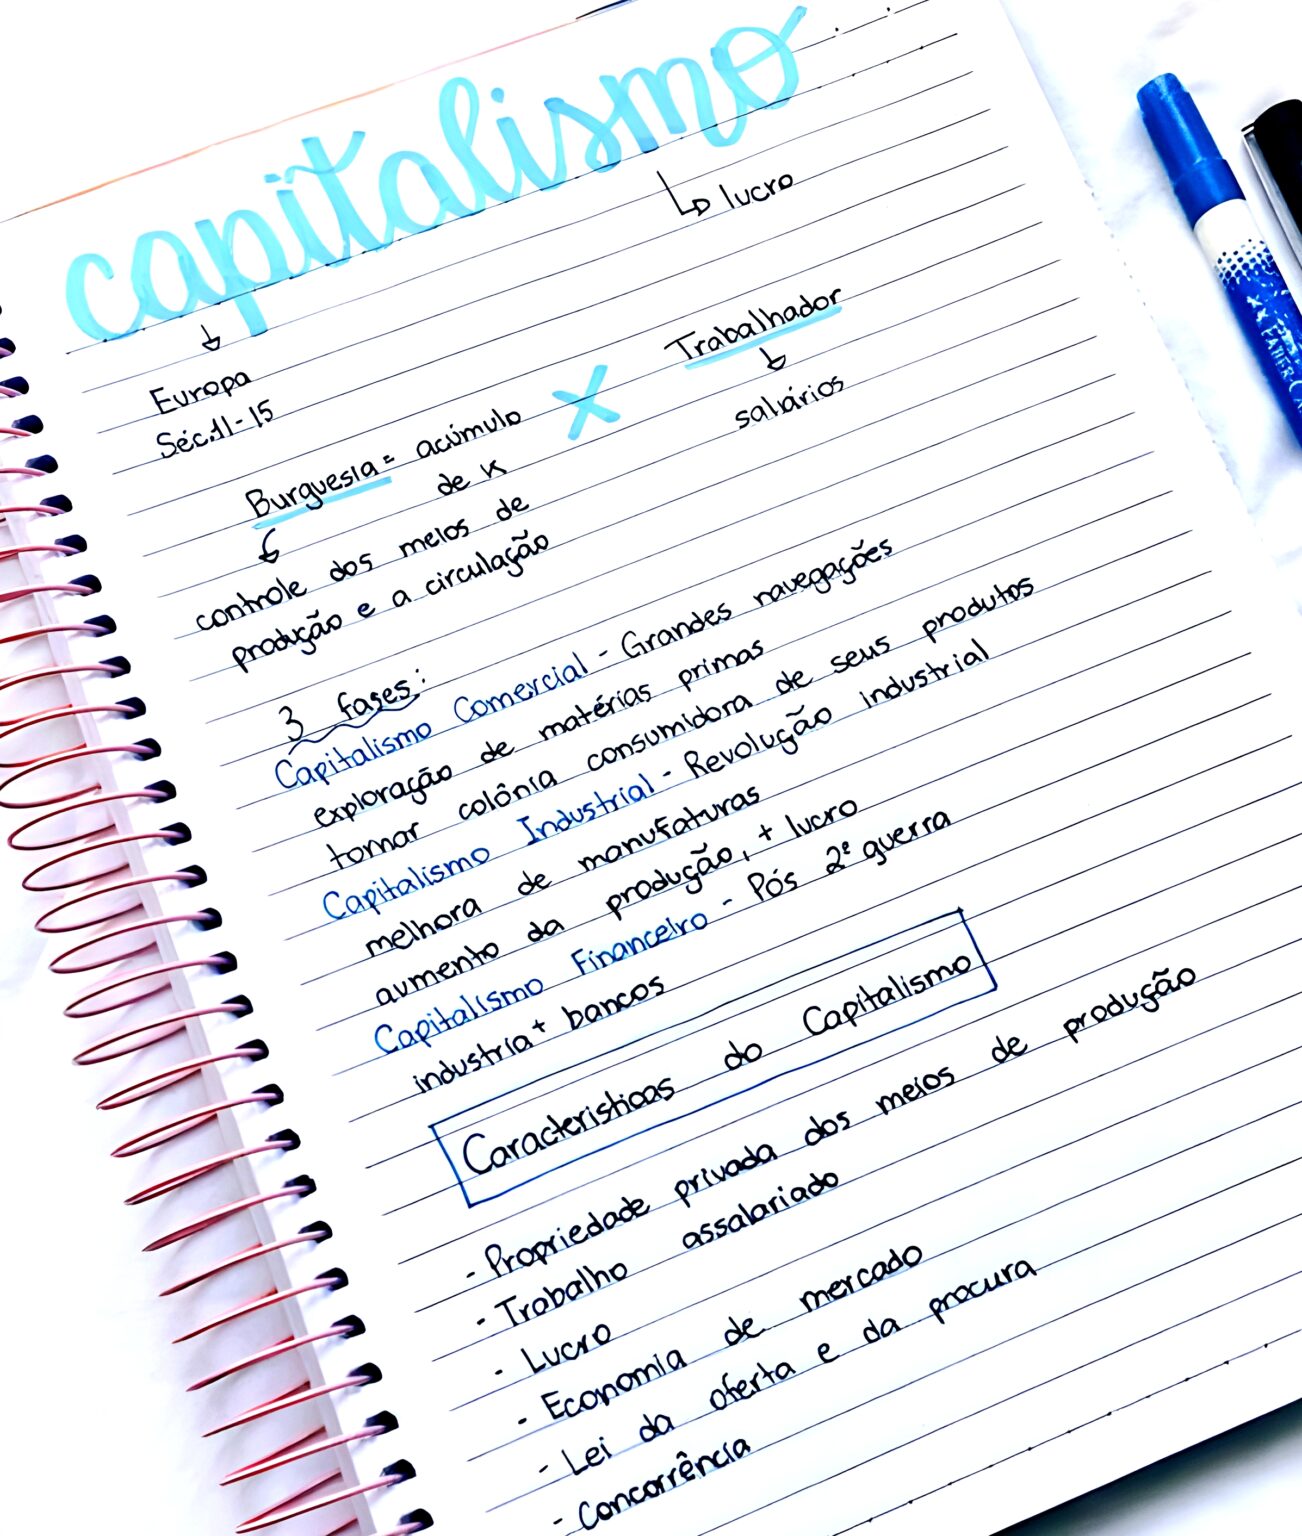 capitalismo
↳ lucro
↓
Europa
Séc.11-15
Burguesia = acúmulo
de K
X
Trabalhador
↓
salários
↓
controle dos meios de
produção e a circulação
3 fases:
Capitalismo Comercial - Grandes navegações
exploração de matérias primas
tornar colônia consumidora de seus produtos
Capitalismo Industrial - Revolução industrial
melhora de manufaturas
aumento da produção, + lucro
Capitalismo Financeiro - Pós 2ª guerra
industria + bancos
Caracteristicas do Capitalismo
- Propriedade privada dos meios de produção
- Trabalho assalariado
- Lucro
- Economia de mercado
- Lei da oferta e da procura
- Concorrência